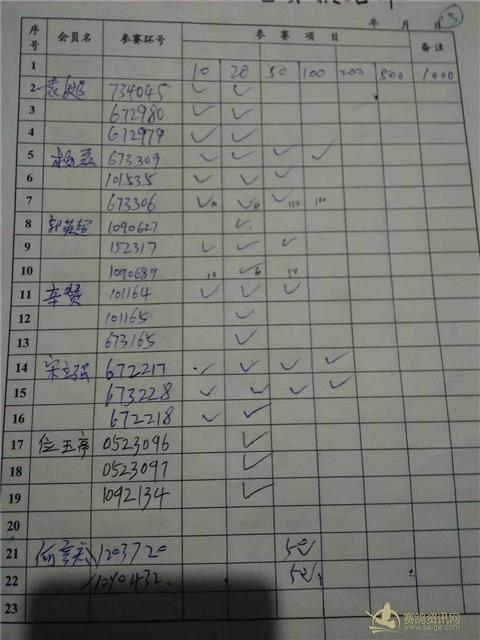 年 月 日 3
序号 会员名 参赛环号 参赛项目 备注
1 10 20 50 100 200 500 1000
2 734045 ✓ ✓
3 672980 ✓ ✓
4 672979 ✓ ✓
5 673309 ✓ ✓ ✓ ✓
6 101535 ✓ ✓ ✓
7 673306 ✓ ✓ ✓ 150 100
8 1090627 ✓
9 152317 ✓ ✓ ✓
10 1090689 10 ✓ 50
11 101164 ✓ ✓ ✓
12 101165 ✓
13 673165 ✓
14 672217 ✓ ✓ ✓ ✓
15 673228 ✓ ✓ ✓ ✓
16 672218 ✓ ✓
17 0523096 ✓
18 0523097 ✓
19 1092134 ✓
20
21 1203720 50 ✓
22 1090432 50 ✓
23
赛鸽资讯网
www.saige.com